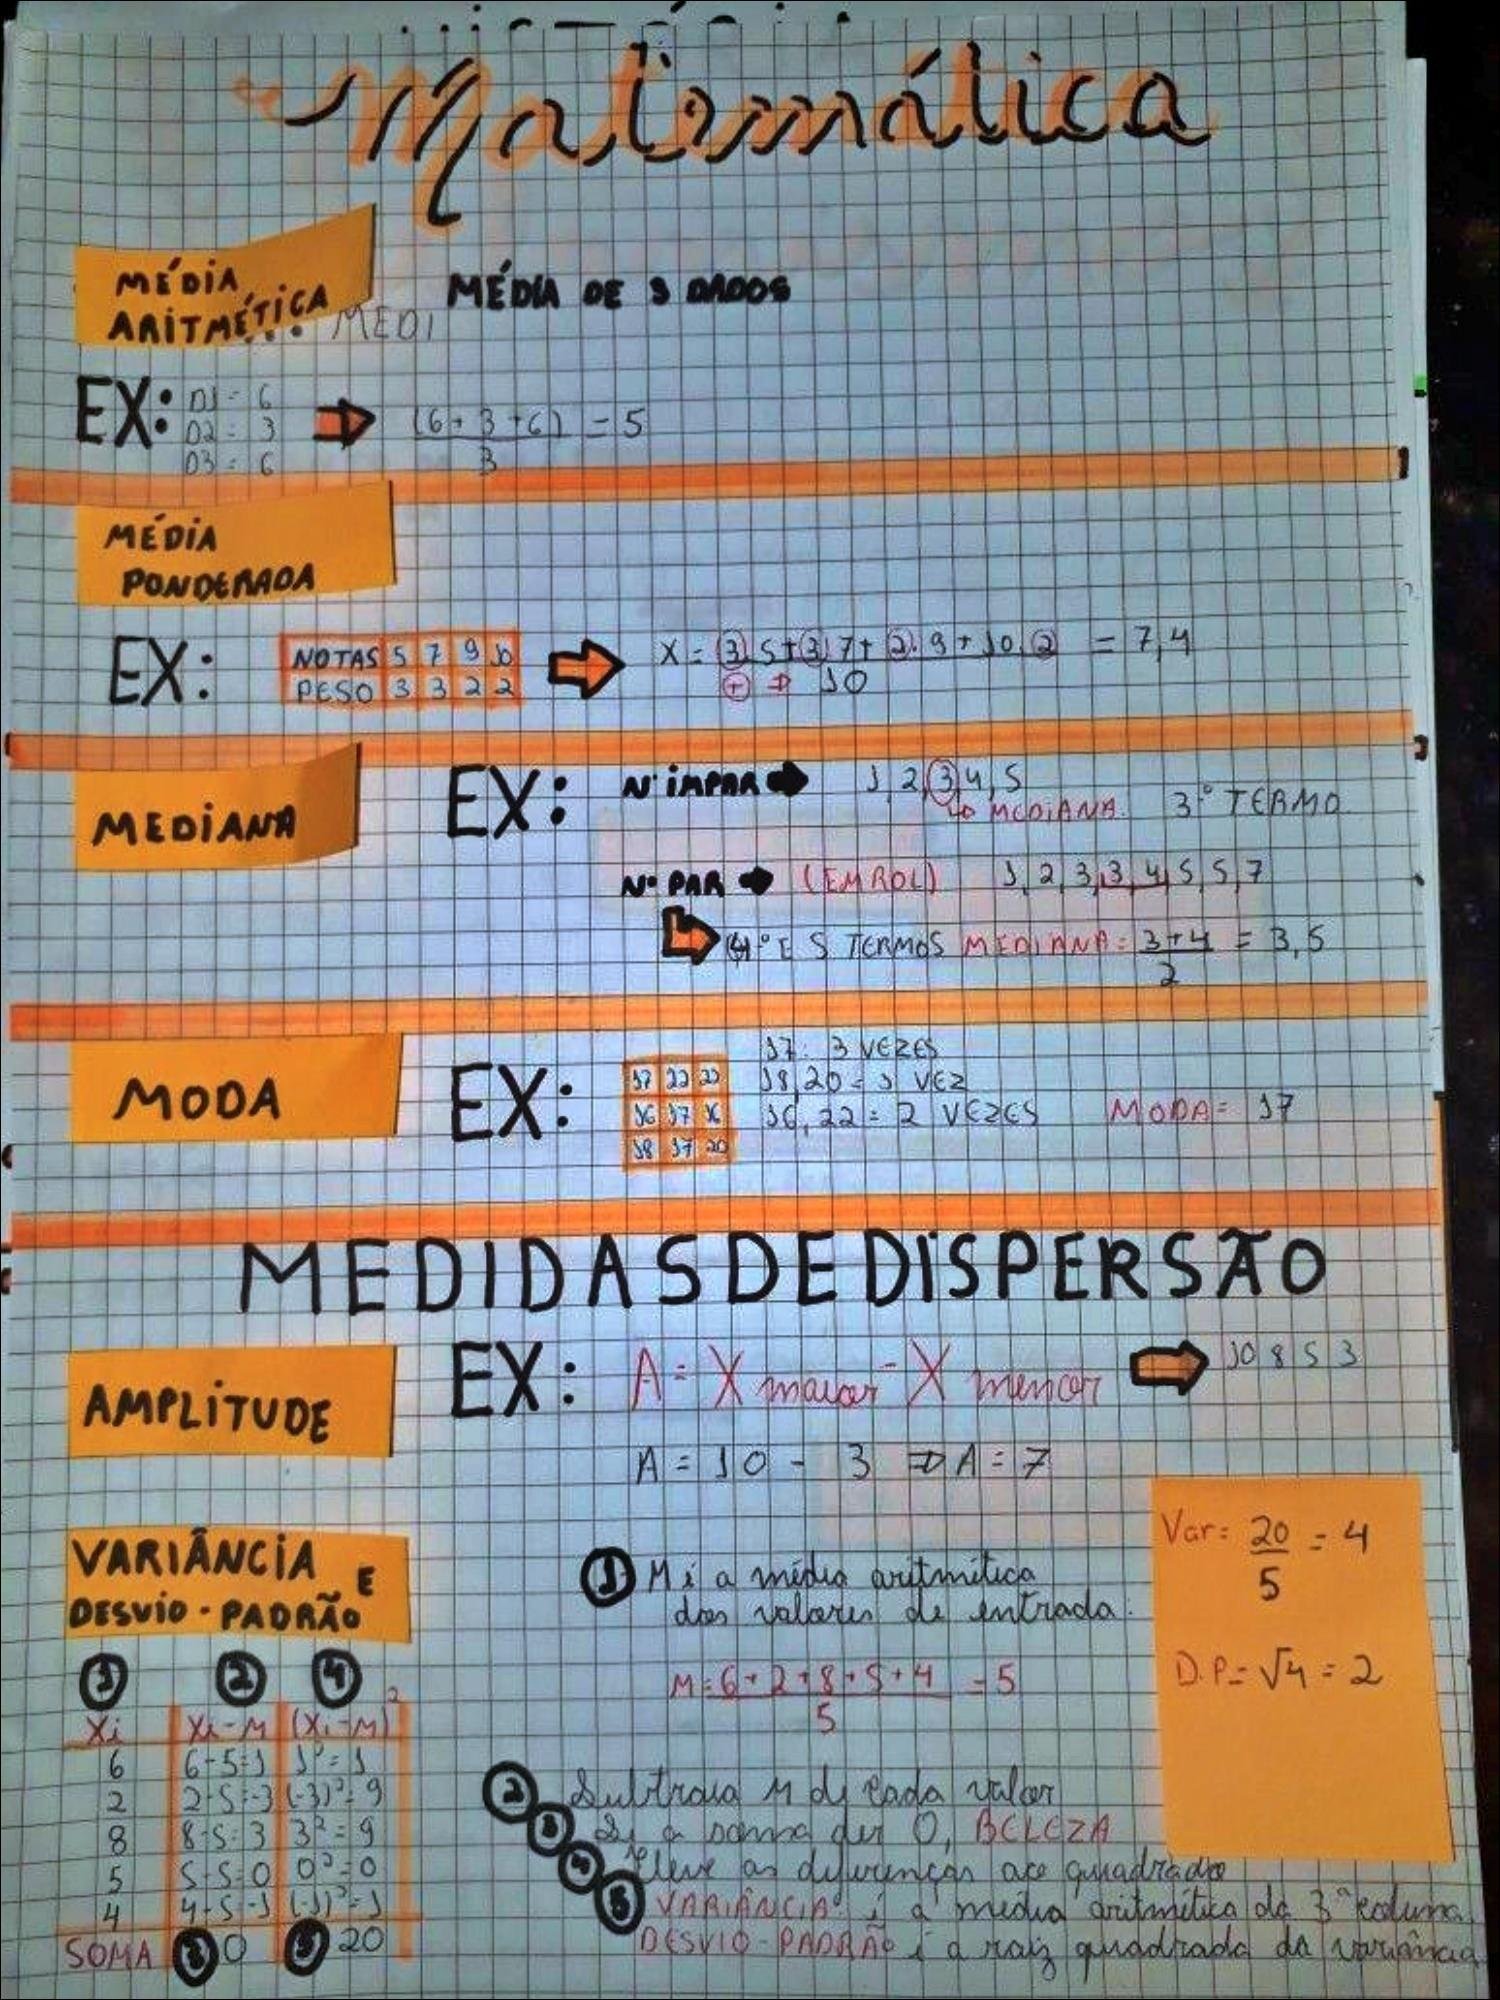 Matemática
MÉDIA
ARITMÉTICA
MEDI
MÉDIA DE 3 DADOS
EX:
D1 = 6
D2 = 3
D3 = 6
(6 + 3 + 6) = 5
3
MÉDIA
PONDERADA
EX:
NOTAS 5 7 9 10
PESO 3 3 2 2
X = 3.5+3.7+2.9+10.2 = 7,4
+ ⇒ 10
MEDIANA
EX:
Nº IMPAR ➡ 1,2,3,4,5
↳ MEDIANA. 3º TERMO
Nº PAR ➡ (EM ROL) 1,2,3,3,4,5,5,7
4º E 5 TERMOS MEDIANA = 3+4 = 3,5
2
MODA
EX:
17 22 22
16 17 16
18 17 20
17: 3 VEZES
18,20 = 1 VEZ
16,22 = 2 VEZES
MODA = 17
MEDIDAS DE DISPERSÃO
AMPLITUDE
EX: A = X maior - X menor
10 8 5 3
A = 10 - 3 ⇒ A = 7
VARIÂNCIA E
DESVIO-PADRÃO
1 M é a média aritmética
dos valores de entrada.
M = 6+2+8+5+4 = 5
5
Var = 20 = 4
5
D.P = √4 = 2
1 2 4
Xi Xi-M (Xi-M)²
6 6-5=1 1²=1
2 2-5=-3 (-3)²=9
8 8-5=3 3²=9
5 5-5=0 0²=0
4 4-5=-1 (-1)²=1
SOMA 3 0 5 20
2 Subtraia M de cada valor
3 Se a soma der 0, BELEZA
4 Eleve as diferenças ao quadrado
5 VARIÂNCIA: é a média aritmética da 3ª coluna
DESVIO-PADRÃO é a raiz quadrada da variância